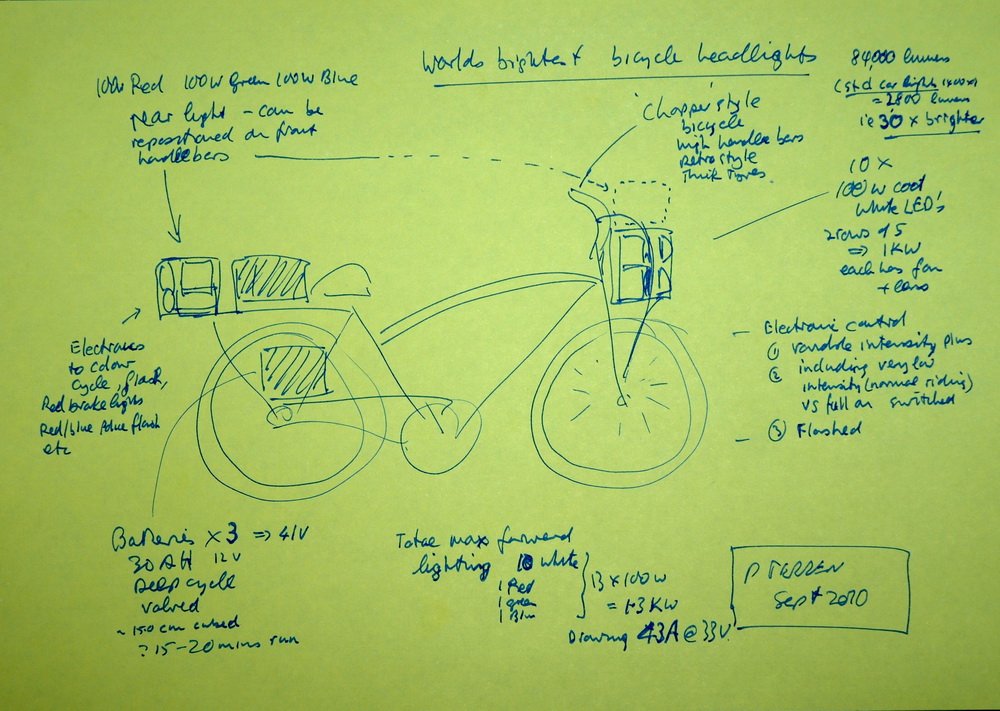 Worlds brightest bicycle headlights
84000 lumens
(std car lights
= 2800 lumens
i.e 30 x brighter
100w Red 100W green 100W Blue
rear light - can be
repositioned on front
handlebars
'Chopper' style
bicycle
high handlebars
Retro style
Thick Tyres
10 x
100W cool
white LED's
2 rows of 5
⇒ 1KW
each has fan
+ lens
Electronics
to colour
cycle, flash,
Red brake lights
Red/blue flash
etc
- Electronic control
① variable intensity plus
② including very low
intensity (normal riding)
vs full on switched
- ③ Flashed
Batteries x 3 ⇒ 41V
30AH 12V
Deep cycle
valved
? 15-20 mins run
Total max forward
lighting 10 white
1 Red
1 green
1 Blue
13 x 100W
= 1.3 KW
Drawing 43A @ 33V
P TERREN
Sept 2010